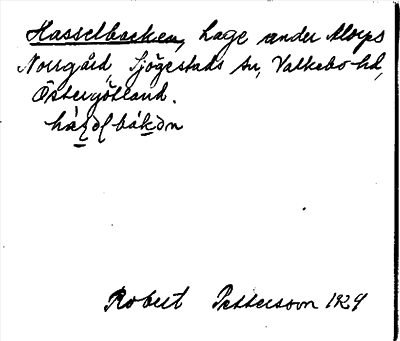 Hasselbacken, Lage under Alorps
Norrgård, Sjögestads sn, Valkebo hd,
Östergötland.
Robert Pettersson 1929